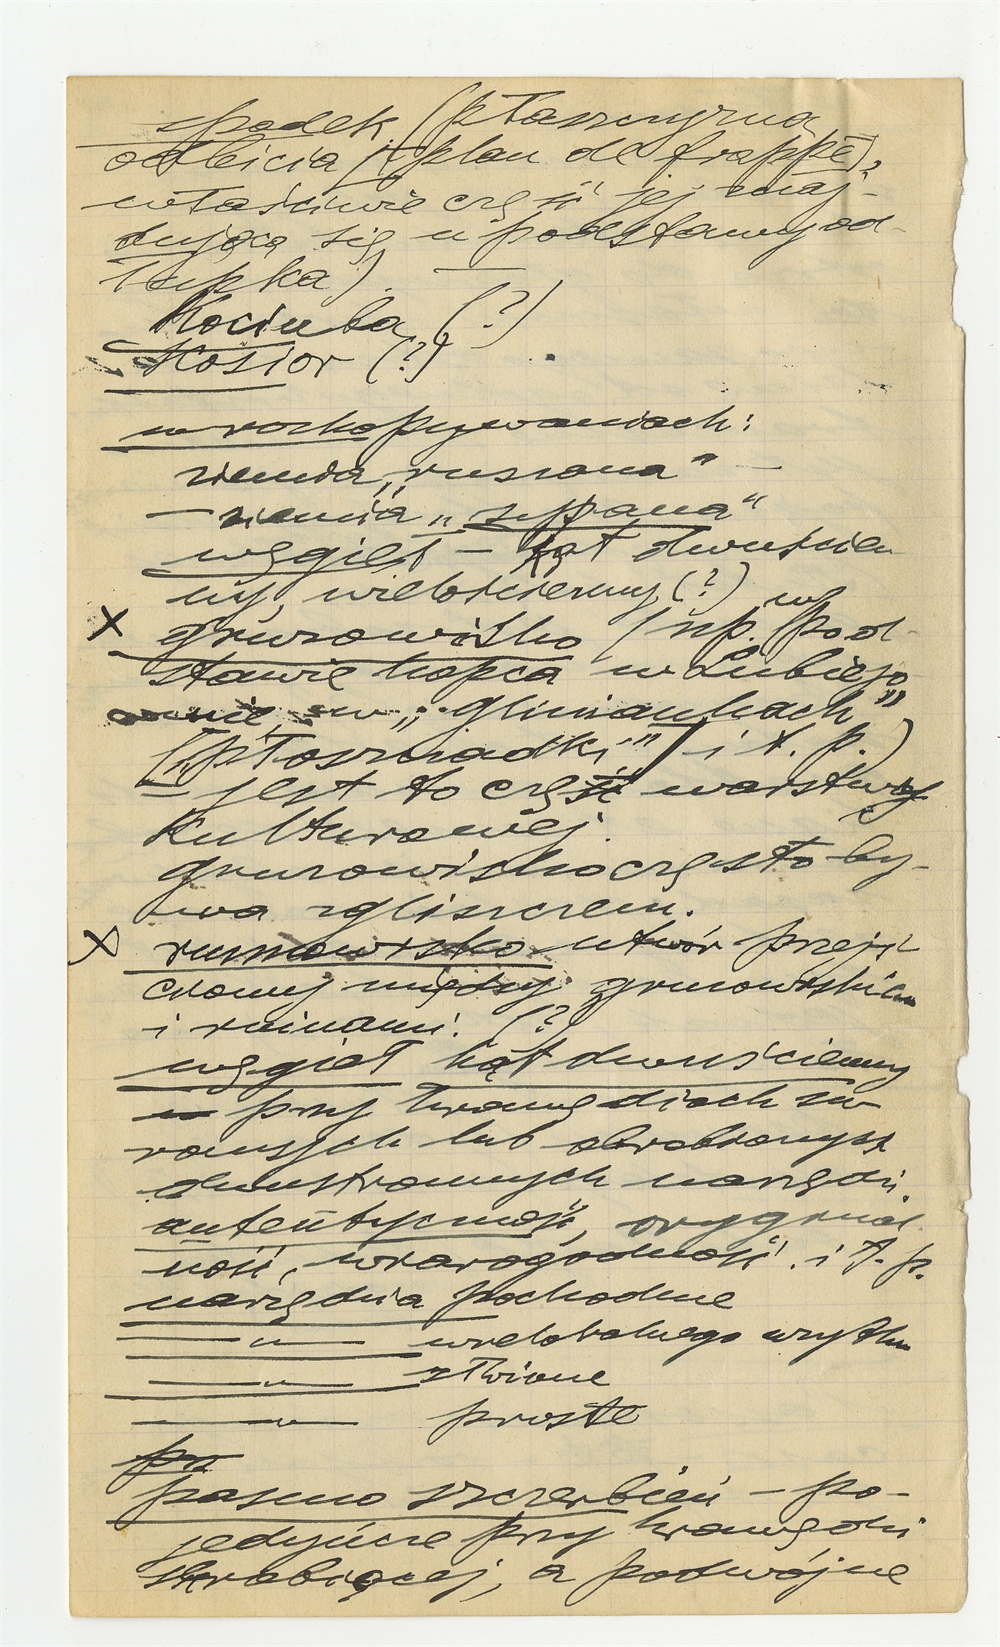 spodek (płaszczyzna
odbicia (plan de frappé),
właściwie część jej znaj-
dująca się u podstawy od-
łupka).
Kociuba (?)
Kosior (?)
w rozkopywaniach:
ziemia „ruszona” —
— ziemia „sypana”
węgieł — kąt dwuścien
ny, wielościenny (?)
x gruzowisko (np. w pod-
stawie kopca w Lubiejo
nie, w „gliniankach”
(„płoszczadki”) i t. p.)
— jest to część warstwy
kulturowej.
gruzowisko często by-
wa zgliszczem.
x rumowisko utwór przejś
ciowy między gruzowiskiem
i ruinami. (?)
węgieł kąt dwuścienny
przy krawędziach su
rowych lub obrobionych
dwustronnych narzędzi.
autentyczność, orygynal
ność, wiarogodność i t. p.
narzędzia pochodne
—„— wielorakiego użytku
—„— złożone
—„— proste
pr
pasmo szczerbień — po-
jedyńcze przy krawędzi
skrobiącej, a podwójne